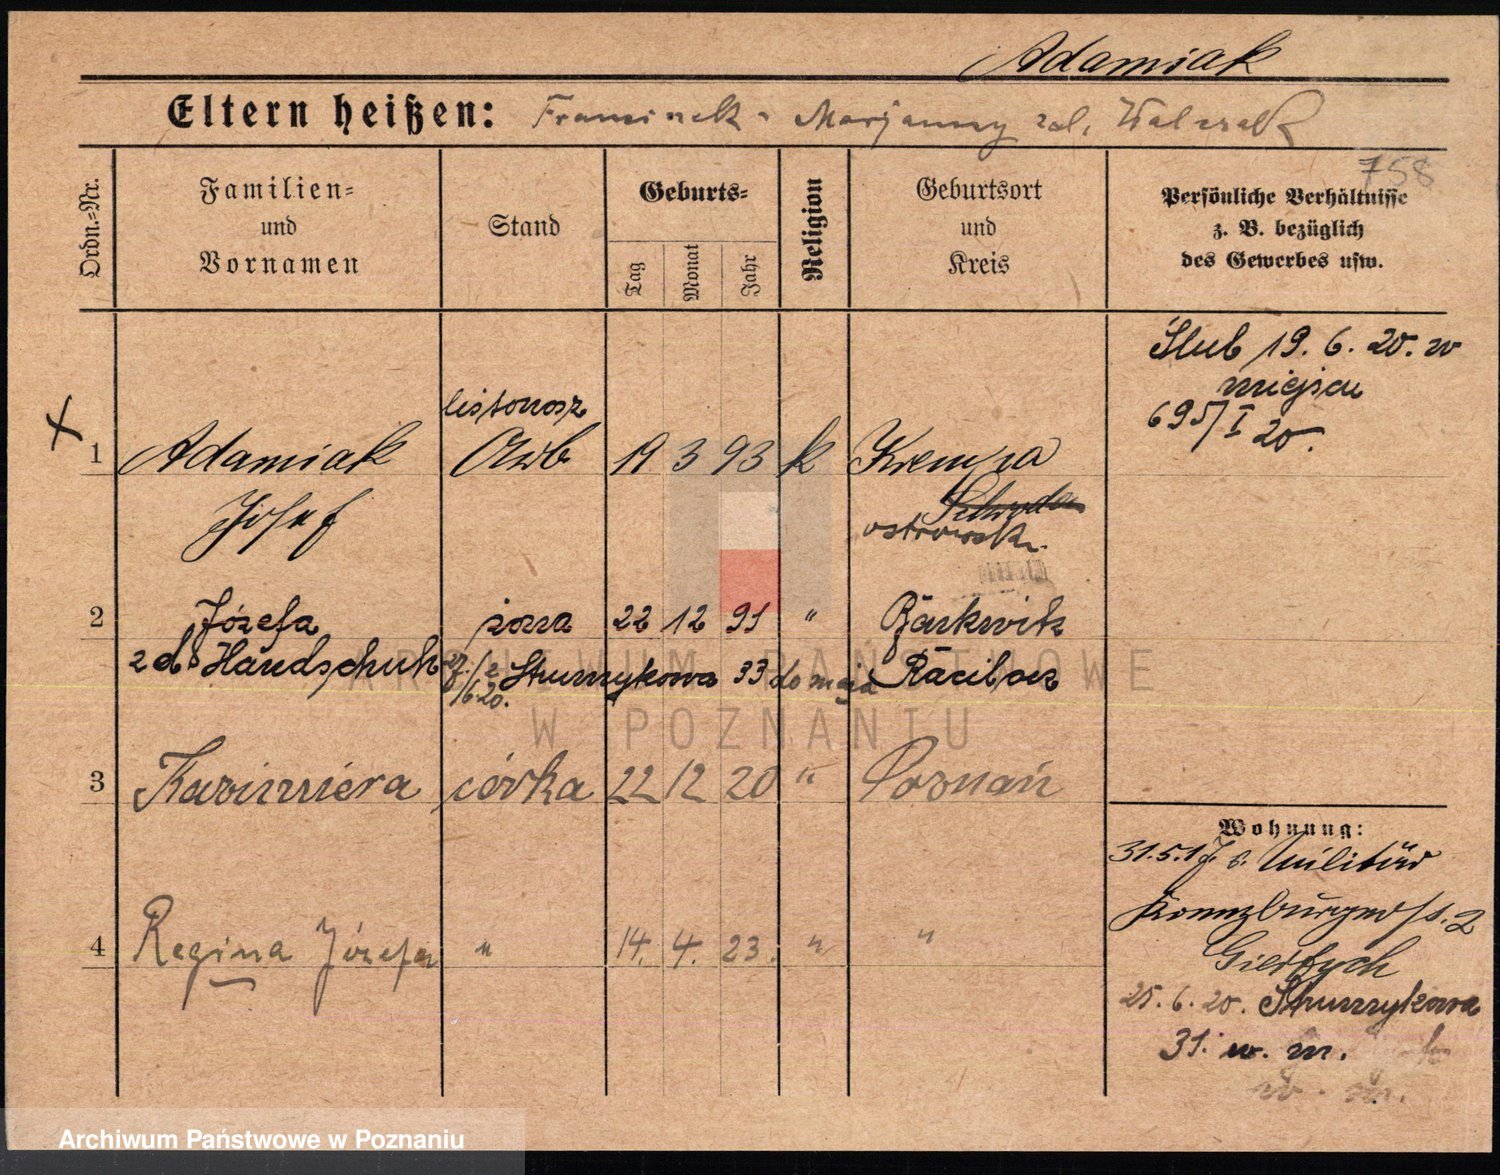 Adamiak
Eltern heißen: Franciszek - Marjanny zd. Walczak
758
Ordn.-Nr.
Familien-
und
Vornamen
Stand
Geburts-
Tag
Monat
Jahr
Religion
Geburtsort
und
Kreis
Persönliche Verhältnisse
z. B. bezüglich
des Gewerbes usw.
Ślub 19. 6. 20. w
miejscu
695/I 20.
listonosz
1 Adamiak Arb 19 3 93 k Krempa
Josef
Schrода
ostrowski
2 Józefa żona 22 12 91 " Barkwitz
zd. Handschuh Strumykowa 33 do maja Racibor
3 Kazimiera córka 22 12 20 " Poznań
4 Regina Józefa " 14. 4. 23. " "
Wohnung:
31.5.17. v. Militär
Giersych
25. 6. 20. Strumykowa
31. w. m.
w. m.
ARCHIWUM PAŃSTWOWE
W POZNANIU
Archiwum Państwowe w Poznaniu